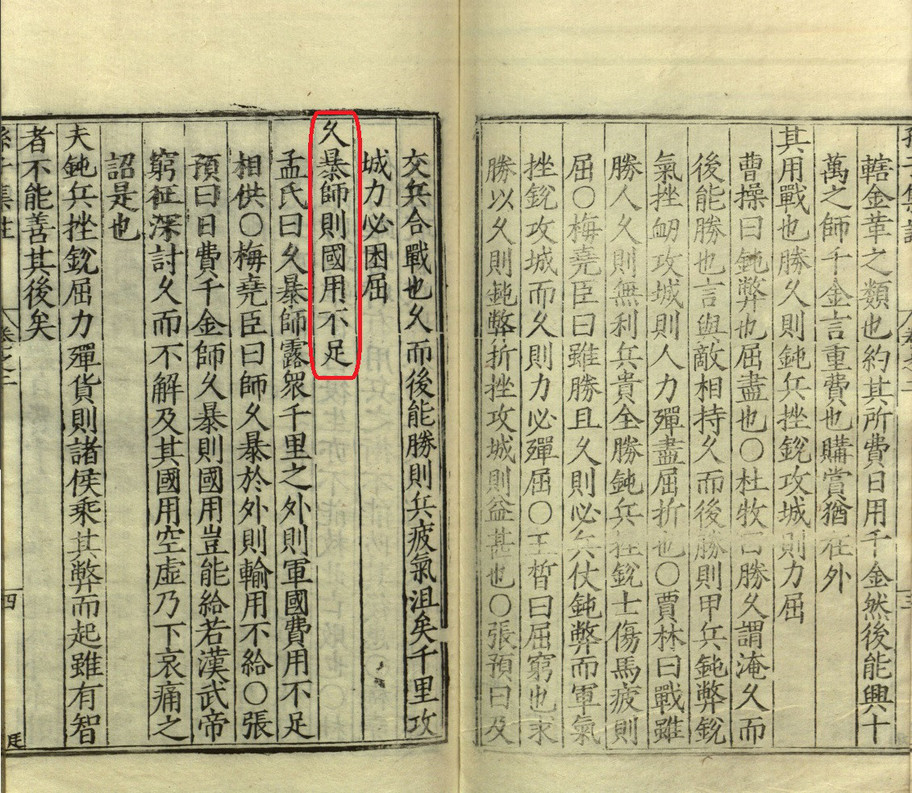 轄金革之類也約其所費日用千金然後能興十
萬之師千金言重費也購賞猶在外
其用戰也勝久則鈍兵挫銳攻城則力屈
曹操曰鈍弊也屈盡也〇杜牧曰勝久謂淹久而
後能勝也言與敵相持久而後勝則甲兵鈍弊銳
氣挫衂攻城則人力殫盡屈折也〇賈林曰戰雖
勝人久則無利兵貴全勝鈍兵挫銳士傷馬疲則
屈〇梅堯臣曰雖勝且久則必兵仗鈍弊而軍氣
挫銳攻城而久則力必殫屈〇王晳曰屈窮也求
勝以久則鈍弊折挫攻城則益甚也〇張預曰及
交兵合戰也久而後能勝則兵疲氣沮矣千里攻
城力必困屈
久暴師則國用不足
孟氏曰久暴師露衆千里之外則軍國費用不足
相供〇梅堯臣曰師久暴於外則輸用不給〇張
預曰日費千金師久暴則國用豈能給若漢武帝
窮征深討久而不解及其國用空虛乃下哀痛之
詔是也
夫鈍兵挫銳屈力殫貨則諸侯乘其弊而起雖有智
者不能善其後矣